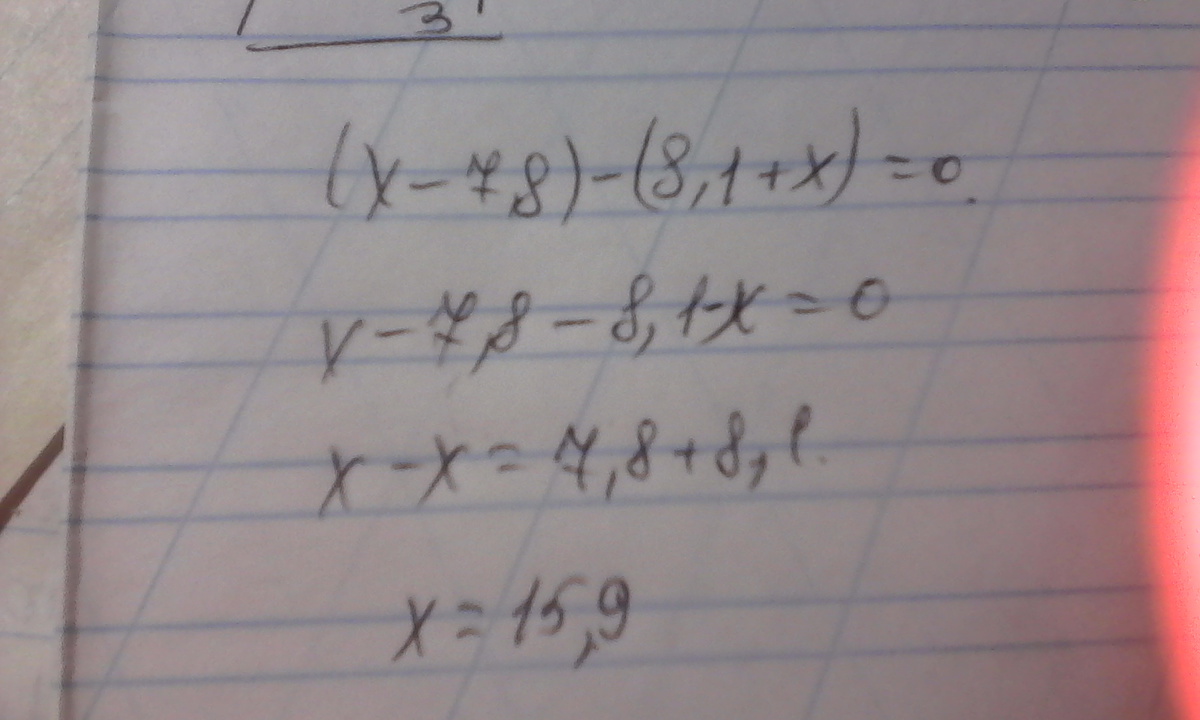 3
(x - 7,8) - (8,1 + x) = 0.
x - 7,8 - 8,1 - x = 0
x - x = 7,8 + 8,1.
x = 15,9